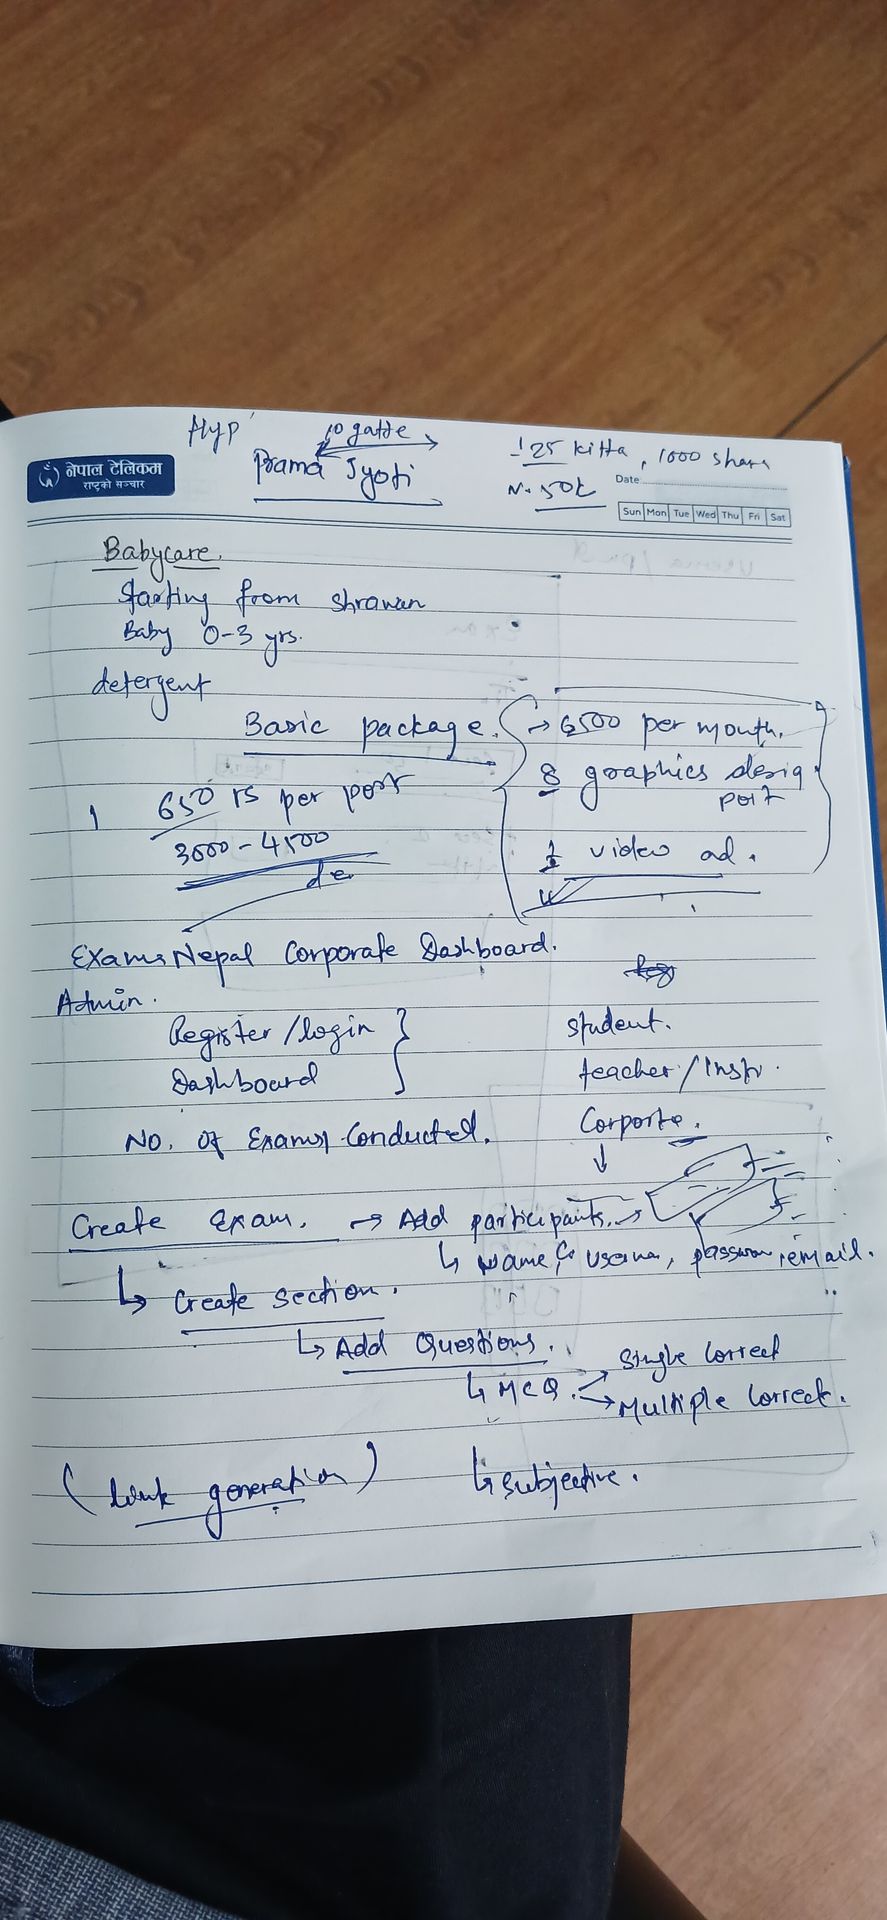 10 gatte
नेपाल टेलिकम
राष्ट्रको सञ्चार
Prama Jyoti
25 kitta, 1000 share
50k
Date
Sun Mon Tue Wed Thu Fri Sat
Babycare.
Starting from Shrawan
Baby 0-3 yrs.
detergent
Basic package. → 6500 per month.
8 graphics desig
post
1 650 rs per post
3000 - 4500
video ad.
de
Exams Nepal Corporate Dashboard.
Admin.
Register/login
Dashboard
student.
teacher/Instr.
Corporte.
No. of Exams Conducted.
Create exam. → Add participants. →
↳ Name, userna, passwor, email.
↳ Create section.
↳ Add Questions.
↳ MCQ. → Single Correct
→ Multiple Correct.
(link generation)
↳ subjective.